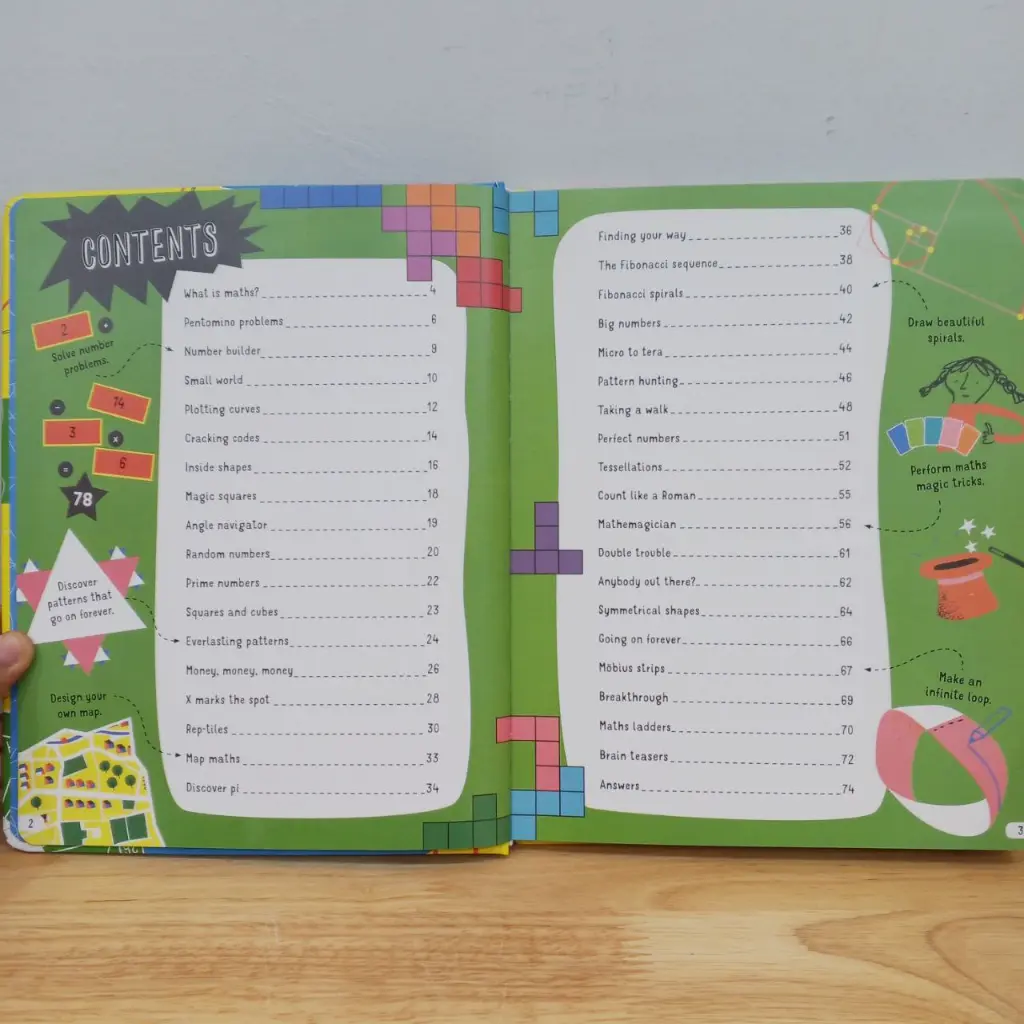 CONTENTS
2
Solve number
problems.
14
3
6
78
Discover
patterns that
go on forever.
Design your
own map.
2
What is maths? 4
Pentomino problems 6
Number builder 9
Small world 10
Plotting curves 12
Cracking codes 14
Inside shapes 16
Magic squares 18
Angle navigator 19
Random numbers 20
Prime numbers 22
Squares and cubes 23
Everlasting patterns 24
Money, money, money 26
X marks the spot 28
Rep-tiles 30
Map maths 33
Discover pi 34
Finding your way 36
The Fibonacci sequence 38
Fibonacci spirals 40
Big numbers 42
Micro to tera 44
Pattern hunting 46
Taking a walk 48
Perfect numbers 51
Tessellations 52
Count like a Roman 55
Mathemagician 56
Double trouble 61
Anybody out there? 62
Symmetrical shapes 64
Going on forever 66
Möbius strips 67
Breakthrough 69
Maths ladders 70
Brain teasers 72
Answers 74
Draw beautiful
spirals.
Perform maths
magic tricks.
Make an
infinite loop.
3